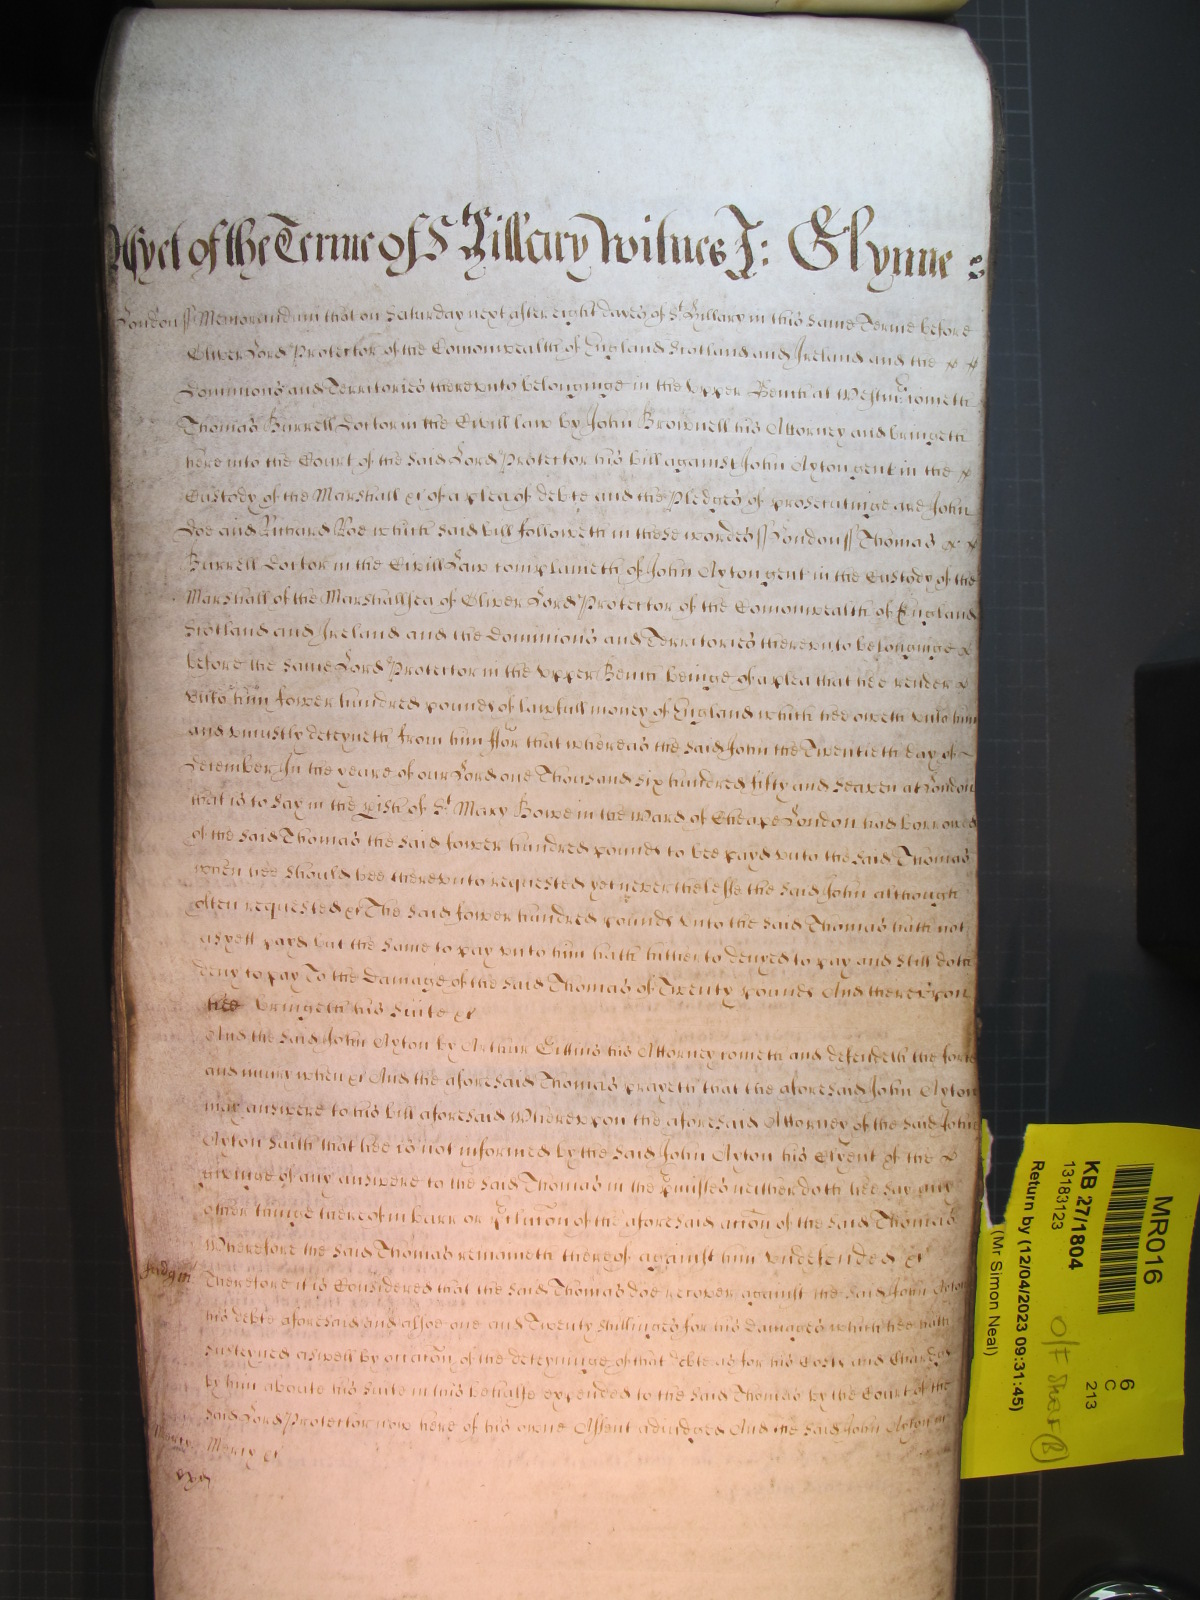 As yet of the Terme of St Hillary Witnes J: Glynne
London ss Memorandum that on Saturday next after eight dayes of St Hillary in this same Terme before
Oliver Lord Protector of the Comonwealth of England Scotland and Ireland and the
Dominions and Territories thereunto belonginge in the upper Bench at Westmr cometh
Thomas Burrell Doctor in the Civill law by John Brownell his Attorney and bringeth
here into the Court of the said Lord Protector his bill against John Ayton gent in the
Custody of the Marshall &c of a plea of debte and the Pledges of prosecutinge are John
Doe and Richard Roe which said bill followeth in these wordes ss London ss Thomas
Burrell Doctor in the Civill Law complaineth of John Ayton gent in the Custody of the
Marshall of the Marshallsea of Oliver Lord Protector of the Comonwealth of England
Scotland and Ireland and the Dominions and Territories thereunto belonginge
before the same Lord Protector in the upper Bench beinge of a plea that hee render
unto him fower hundred pounds of lawfull money of England which hee oweth unto him
and uniustly deteyneth from him ffor that whereas the said John the Twentieth day of
December In the yeare of our Lord one Thousand six hundred fifty and seaven at London
that is to say in the pish of St Mary Bowe in the Ward of Cheape London had borrowed
of the said Thomas the said fower hundred pounds to bee payd unto the said Thomas
when hee should bee thereunto requested yet neverthelesse the said John although
often requested &c The said fower hundred pounds unto the said Thomas hath not
as yett payd but the same to pay unto him hath hitherto denyed to pay and still doth
deny to pay To the damage of the said Thomas of Twenty pounds And thereupon
hee bringeth his suite &c
And the said John Ayton by Arthur his Attorney cometh and defendeth the force
and iniury when &c And the aforesaid Thomas prayeth that the aforesaid John Ayton
may answere to his bill aforesaid Whereupon the aforesaid Attorney of the said John
Ayton saith that hee is not informed by the said John Ayton his Clyent of the
givinge of any answere to the said Thomas in the pmisses neither doth hee say any
other thinge thereof in barr or of the aforesaid accon of the said Thomas
Wherefore the said Thomas remaineth thereof against him undefended &c
Judgmt Therefore it is Considered that the said Thomas doe recover against the said John Ayton
his debte aforesaid and alsoe one and Twenty shillinges for his damages which hee hath
susteyned aswell by occacon of the deteyninge of that debte as for his Costs and Charges
by him aboute his suite in this behalfe expended to the said Thomas by the Court of the
said Lord Protector now here of his owne Assent adiudged And the said John Ayton in
Mercy Mercy &c
MR016
KB 27/1804
13183123
Return by (12/04/2023 09:31:45)
(Mr Simon Neal)
6
C
213